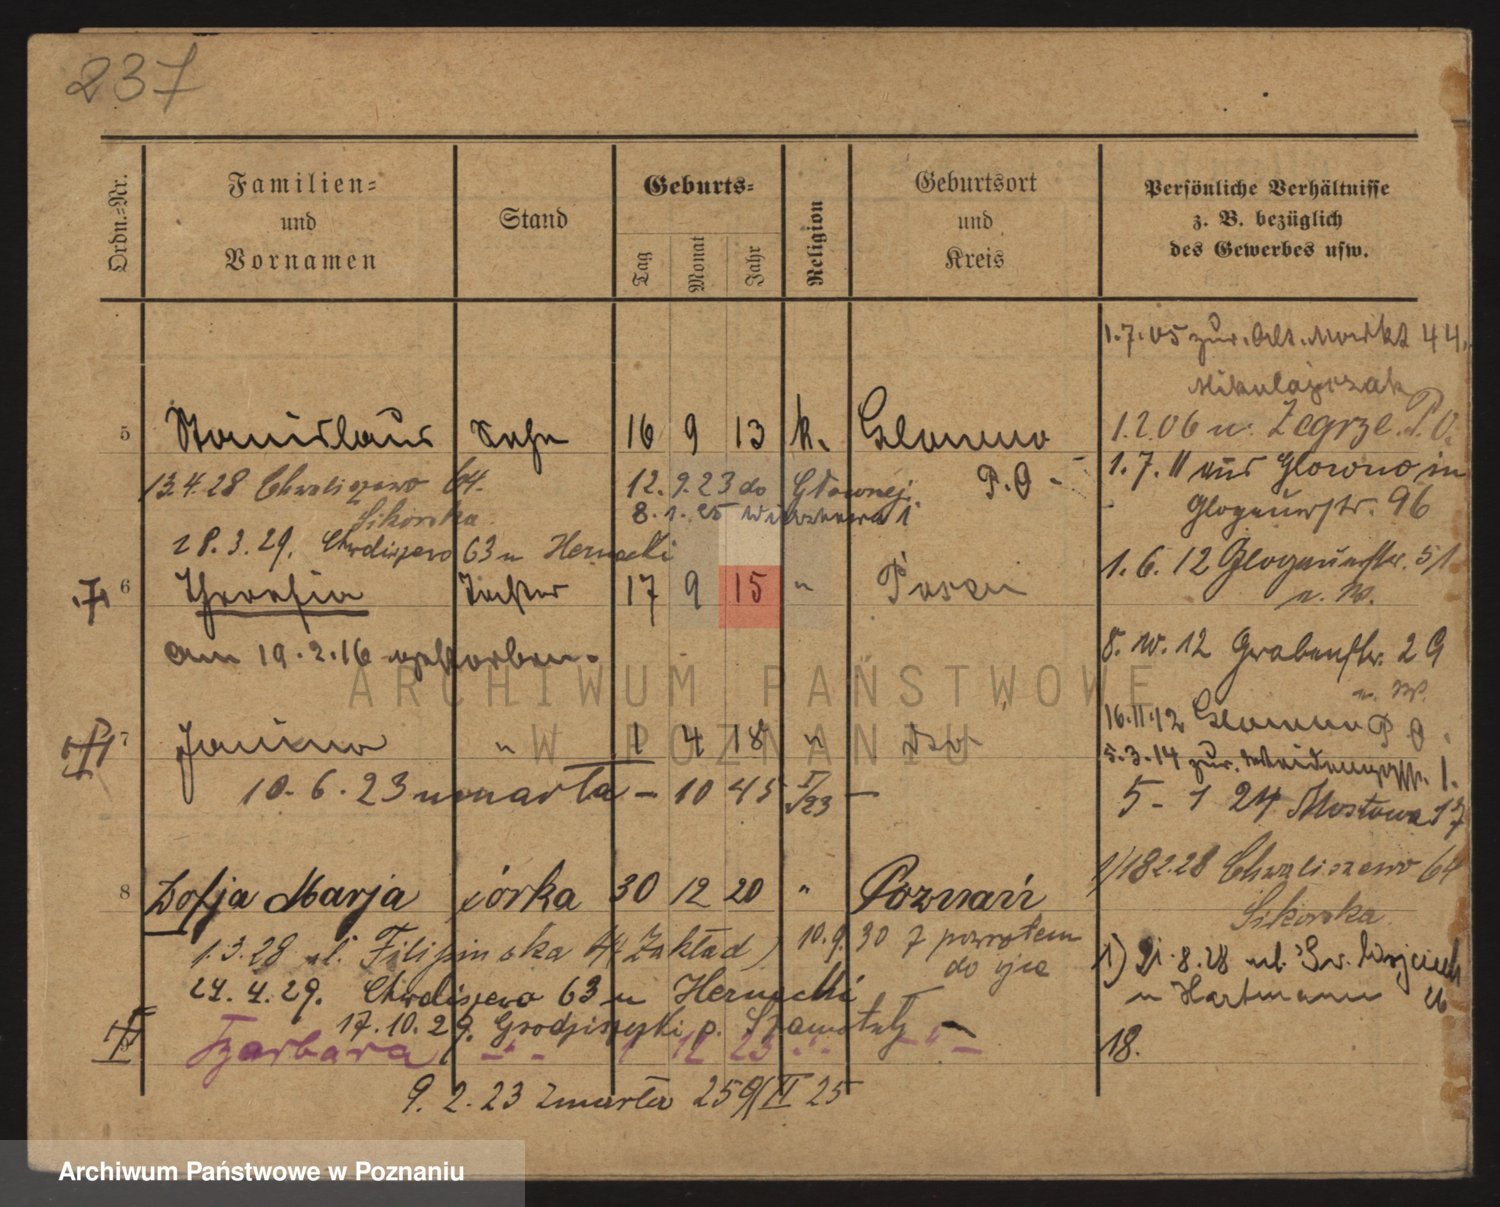 237
Ordn.=Nr.
Familien=
und
Vornamen
Stand
Geburts=
Tag
Monat
Jahr
Religion
Geburtsort
und
Kreis
Persönliche Verhältnisse
z. B. bezüglich
des Gewerbes usw.
1.7.05 zur. Alt. Markt 44.
Mikolajczak
5 Stanislaus Sohn 16 9 13 k. Glowno
P.O
1.2.06 n. Zegrze. P.O.
1.7.11 aus Glowno in
Glogauerstr. 96
13.4.28 Chwaliszewo 64.
Sikorska
12.9.23 do Głownej
8.1.25
28.3.29. Chwaliszewo 63 u Hernacki
1.6.12 Glogauerstr. 51
n. W.
6 Theresia Tochter 17 9 15 " Posen
am 19.2.16 gestorben.
8. 12 Grabenstr. 29
n. W.
7 Janina " 1 4 18 "
16.11.12 Glowno P O
5.3.14 zur. 1.
10.6.23 umarła - 10 45 - 
5-1 24 Mostowa 17
8 Zofja Marja córka 30 12 20 " Poznań
1) 18 2.28 Chwaliszewo 64
Sikorska
1.3.28 ul. Filipinska 4 (Zakład)
10.9.30 z powrotem
do ojca
1) 21.8.28 ul. Św. Wojciech
u Hartmann 26
24.4.29. Chwaliszewo 63 u Hernacki
17.10.29. Grodziszczki p. Szamotuły
Barbara -"- 1 12 23 -"- -"-
18.
9.2.23 zmarła 259/II 25
ARCHIWUM PAŃSTWOWE
W POZNANIU
Archiwum Państwowe w Poznaniu